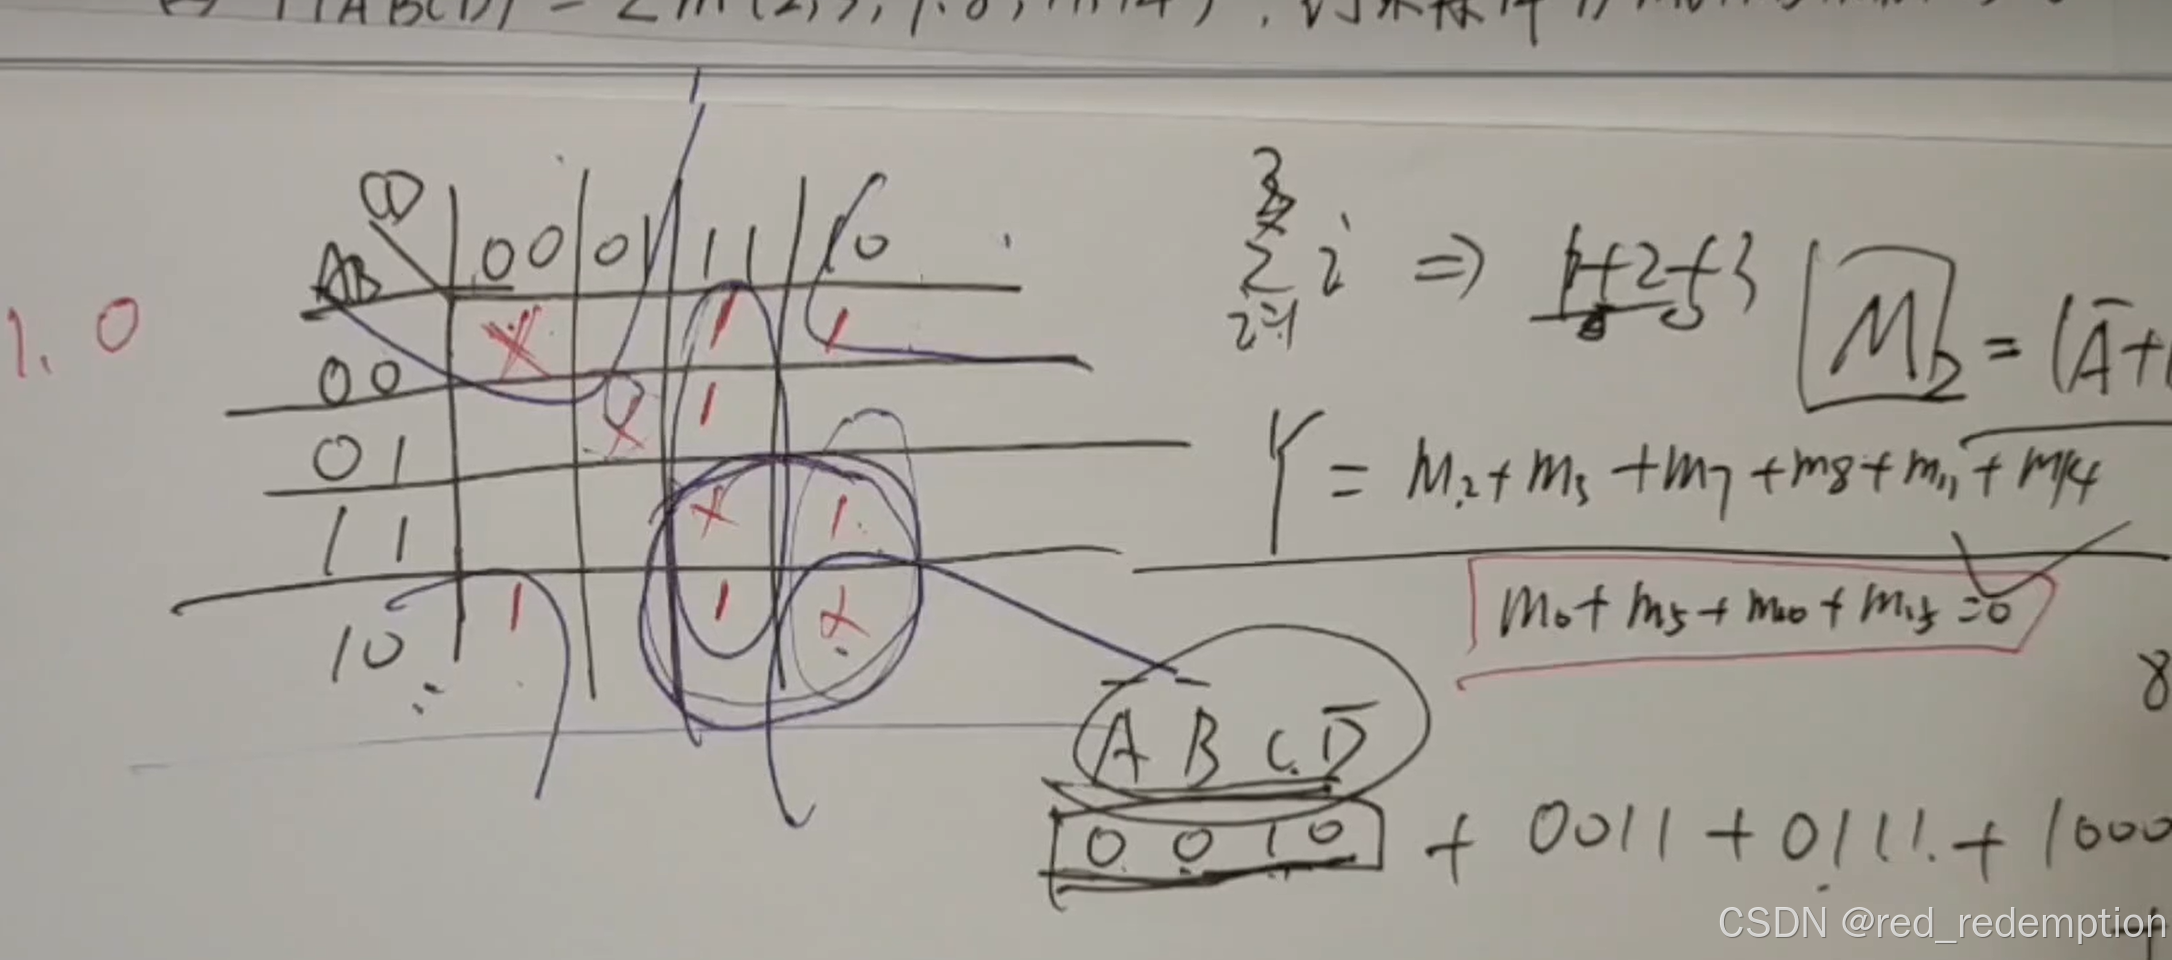 Y(ABCD) = Σm(2,3,7,8,11,14)
CD
AB 00 01 11 10
00 X 1 1
01 X 1
11 X 1
10 1 1 X
1. 0
3
Σ i ⇒ 1+2+3
i=1
M₂ = (A̅+
Y = m₂+m₃+m₇+m8+m₁₁+m14
m₀+m₅+m₁₀+m₁₅=0
8
A̅ B̅ C D̅
0 0 1 0 + 0011 + 0111 + 1000
CSDN @red_redemption